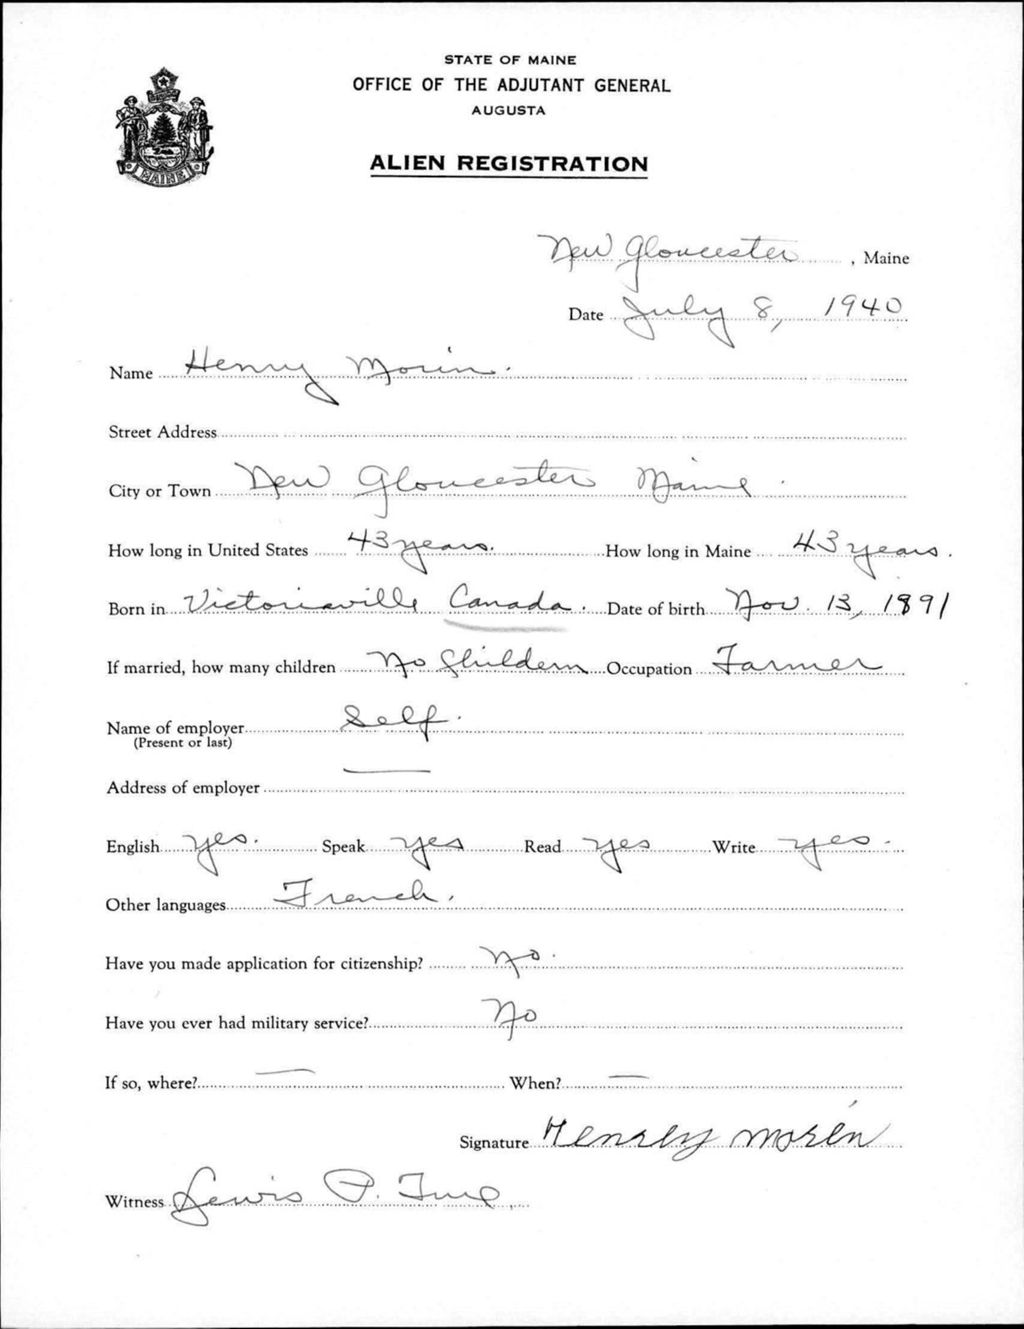 STATE OF MAINE
OFFICE OF THE ADJUTANT GENERAL
AUGUSTA
ALIEN REGISTRATION
MAINE
New Gloucester, Maine
Date July 8, 1940
Name Henry Morin.
Street Address
City or Town New Gloucester Maine.
How long in United States 43 years. How long in Maine 43 years.
Born in Victoriaville Canada. Date of birth Nov. 13, 1891
If married, how many children No Childern Occupation Farmer
Name of employer Self.
(Present or last)
Address of employer —
English yes. Speak yes Read yes Write yes.
Other languages French.
Have you made application for citizenship? No.
Have you ever had military service? No
If so, where? — When? —
Signature Henry Morin
Witness Lewis P.